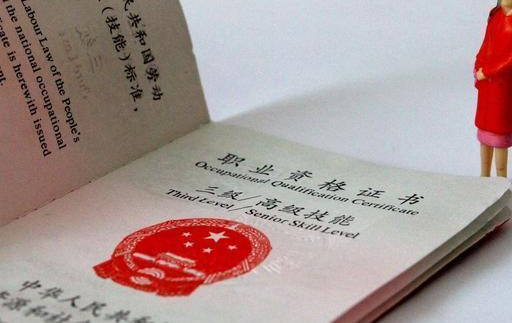 民共和国劳动
(技能)标准，
Labour Law of the People's
the national occupational
icate is herewith issued
职业资格证书
Occupational Qualification Certificate
三级/高级技能
Third Level / Senior Skill Level
中华人民共和